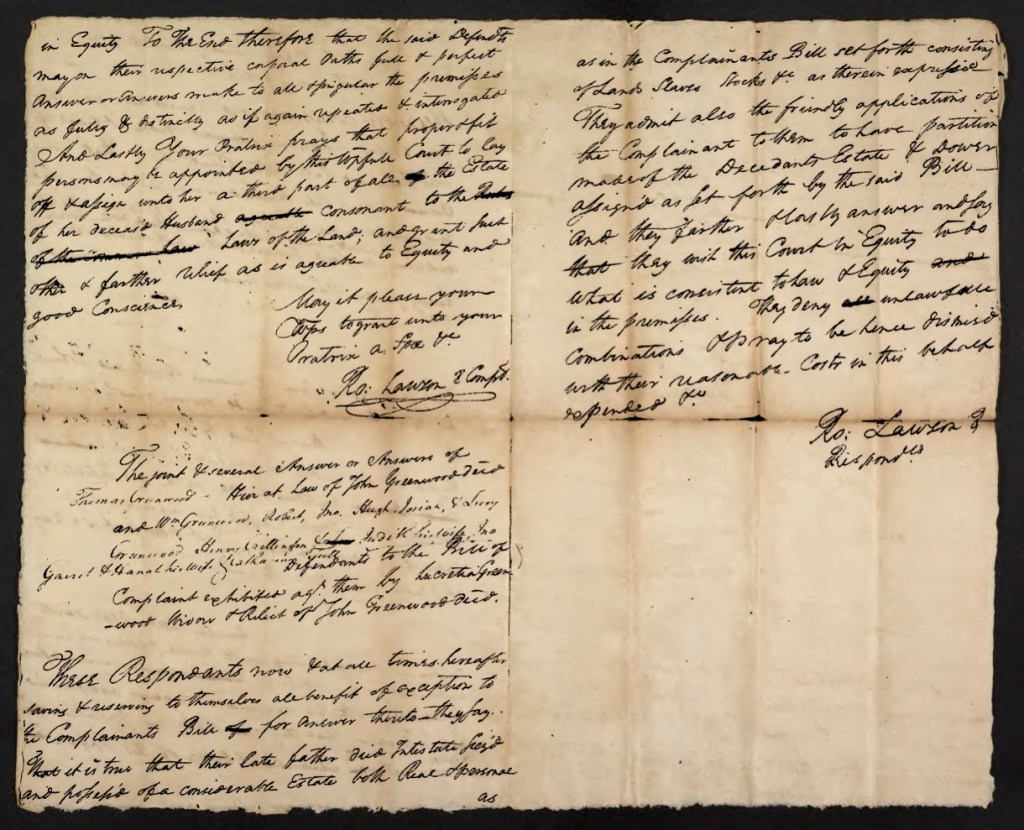 in Equity To The End therefore that the said Defendts
may on their respective corporal Oaths full & perfect
Answer or Answers make to all & singular the premisses
as fully & distinctly as if again repeated & interrogated
And Lastly Your Oratrix prays that proper & fit
persons may be appointed by this Worpfull Court to lay
off & assign unto her a third part of all of the Estate
of her deceas'd Husband agreeable consonant to the Rules
of the common law Laws of the Land; and grant such
other & farther relief as is agreable to Equity and
good Conscience
May it please your
Wps to grant unto your
Oratrix a Spa &c
Ro: Lawson P Compt.
The joint & several Answer or Answers of
Thomas Greenwood Heir at Law of John Greenwood decd
and Wm Greenwood, Robert, Jno, Hugh, Josiah, & Lucy
Greenwood Henry Judith his Wife, Jno
& Hanah his Wife Defendants to the Bill of
Complaint exhibited agt. them by Lucretia Green
-wood Widow & Relict of John Greenwood decd.
These Respondants now & at all times hereafter
saving & reserving to themselves all benefit of exception to
the Complainants Bill of for answer thereto they say.
That it is true that their late father died Intestate seiz'd
and possess'd of a considerable Estate both Real & personal
as
as in the Complainants Bill set forth consisting
of Lands Slaves Stocks &c as therein expressed
They admit also the friendly applications of
the Complainant to them to have partition
made of the Decedants Estate & Dower
assign'd as set forth by the said Bill —
And they farther & lastly answer and say
that they wish this Court in Equity to do
what is consistent to Law & Equity and
in the premisses. They deny all unlawfull
Combinations & pray to be hence dismis'd
with their reasonable Costs in this behalf
expended &c
Ro: Lawson P
Respondts